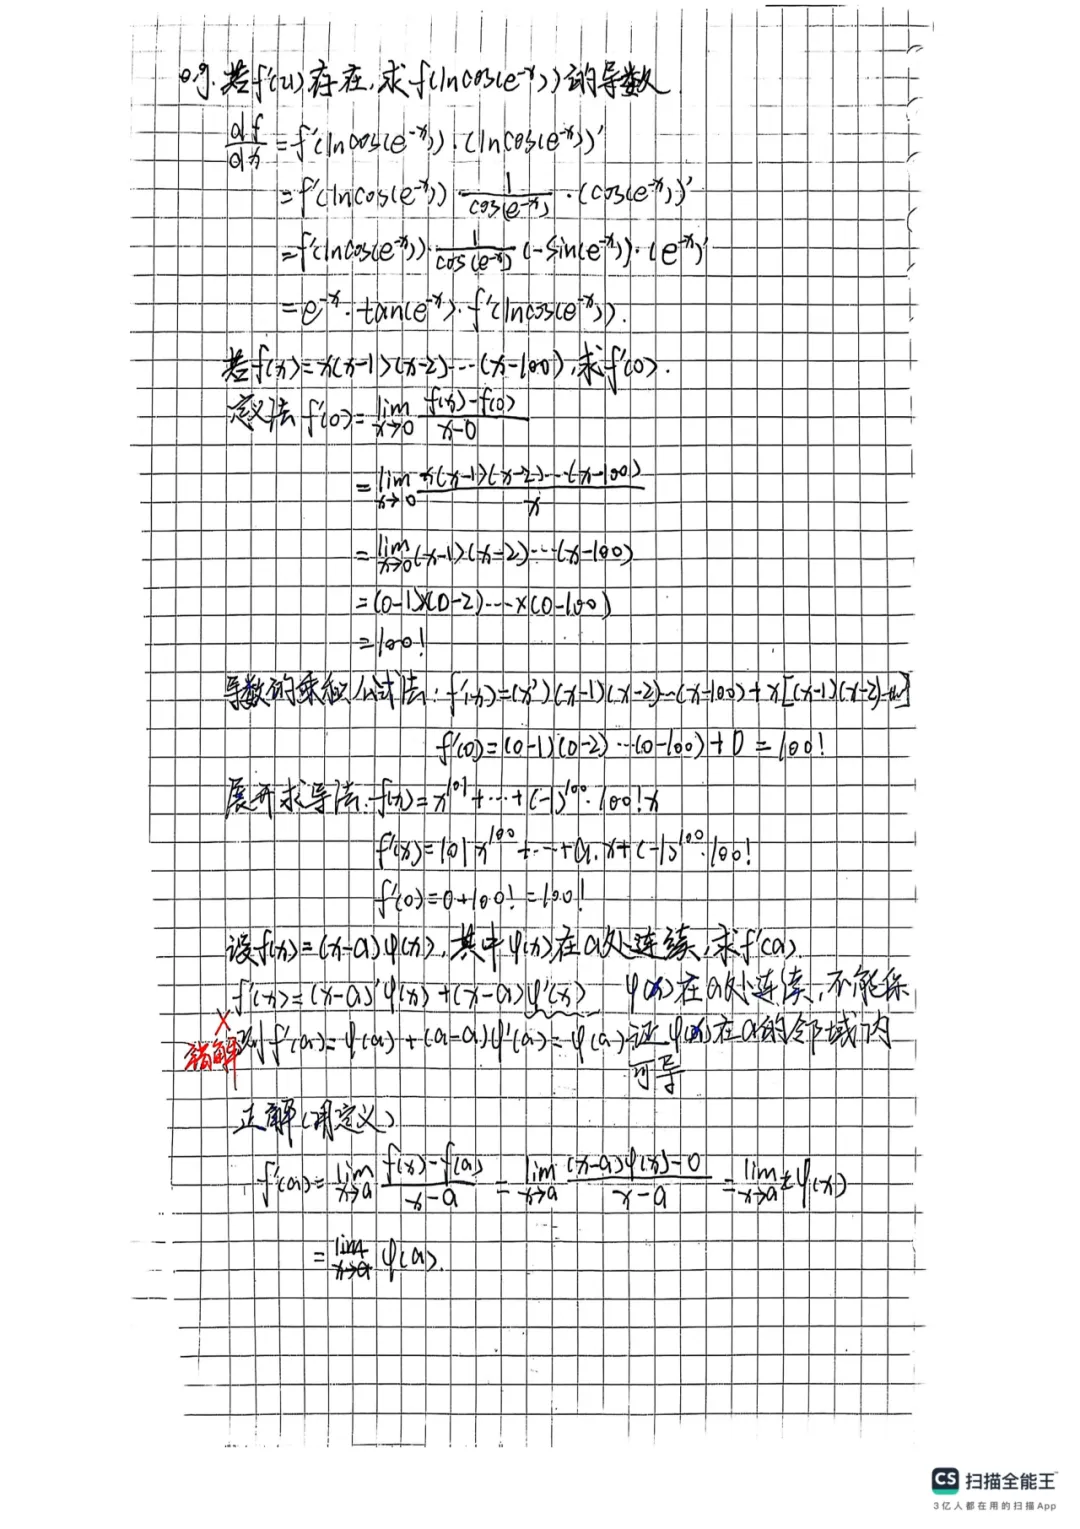 e.g. 若f'(u)存在,求f(lncos(e^{-x}))的导数.
df/dx = f'(lncos(e^{-x}))·(lncos(e^{-x}))'
= f'(lncos(e^{-x})) 1/cos(e^{-x}) ·(cos(e^{-x}))'
= f'(lncos(e^{-x}))· 1/cos(e^{-x}) (-sin(e^{-x}))·(e^{-x})'
= e^{-x}·tan(e^{-x})·f'(lncos(e^{-x})).
若f(x)=x(x-1)(x-2)…(x-100),求f'(0).
定义法 f'(0)= lim_{x→0} (f(x)-f(0))/(x-0)
= lim_{x→0} x(x-1)(x-2)…(x-100)/x
= lim_{x→0} (x-1)(x-2)…(x-100)
=(0-1)×(0-2)…×(0-100)
=100!
导数的乘积公式法: f'(x)=(x')(x-1)(x-2)…(x-100)+x[(x-1)(x-2)…]
f'(0)=(0-1)(0-2)…(0-100)+0=100!
展开求导法: f(x)=x^{101}+…+(-1)^{100}·100!x
f'(x)=101x^{100}+…+a·x+(-1)^{100}·100!
f'(0)=0+100!=100!
设f(x)=(x-a)φ(x),其中φ(x)在a处连续,求f'(a).
f'(x)=(x-a)'φ(x)+(x-a)φ'(x) φ(x)在a处连续,不能保
× 错解 则f'(a)=φ(a)+(a-a)φ'(a)=φ(a) 证φ(x)在a的邻域内
可导
正解(用定义)
f'(a)= lim_{x→a} (f(x)-f(a))/(x-a) = lim_{x→a} ((x-a)φ(x)-0)/(x-a) = lim_{x→a} φ(x)
= φ(a).
CS 扫描全能王
3亿人都在用的扫描App